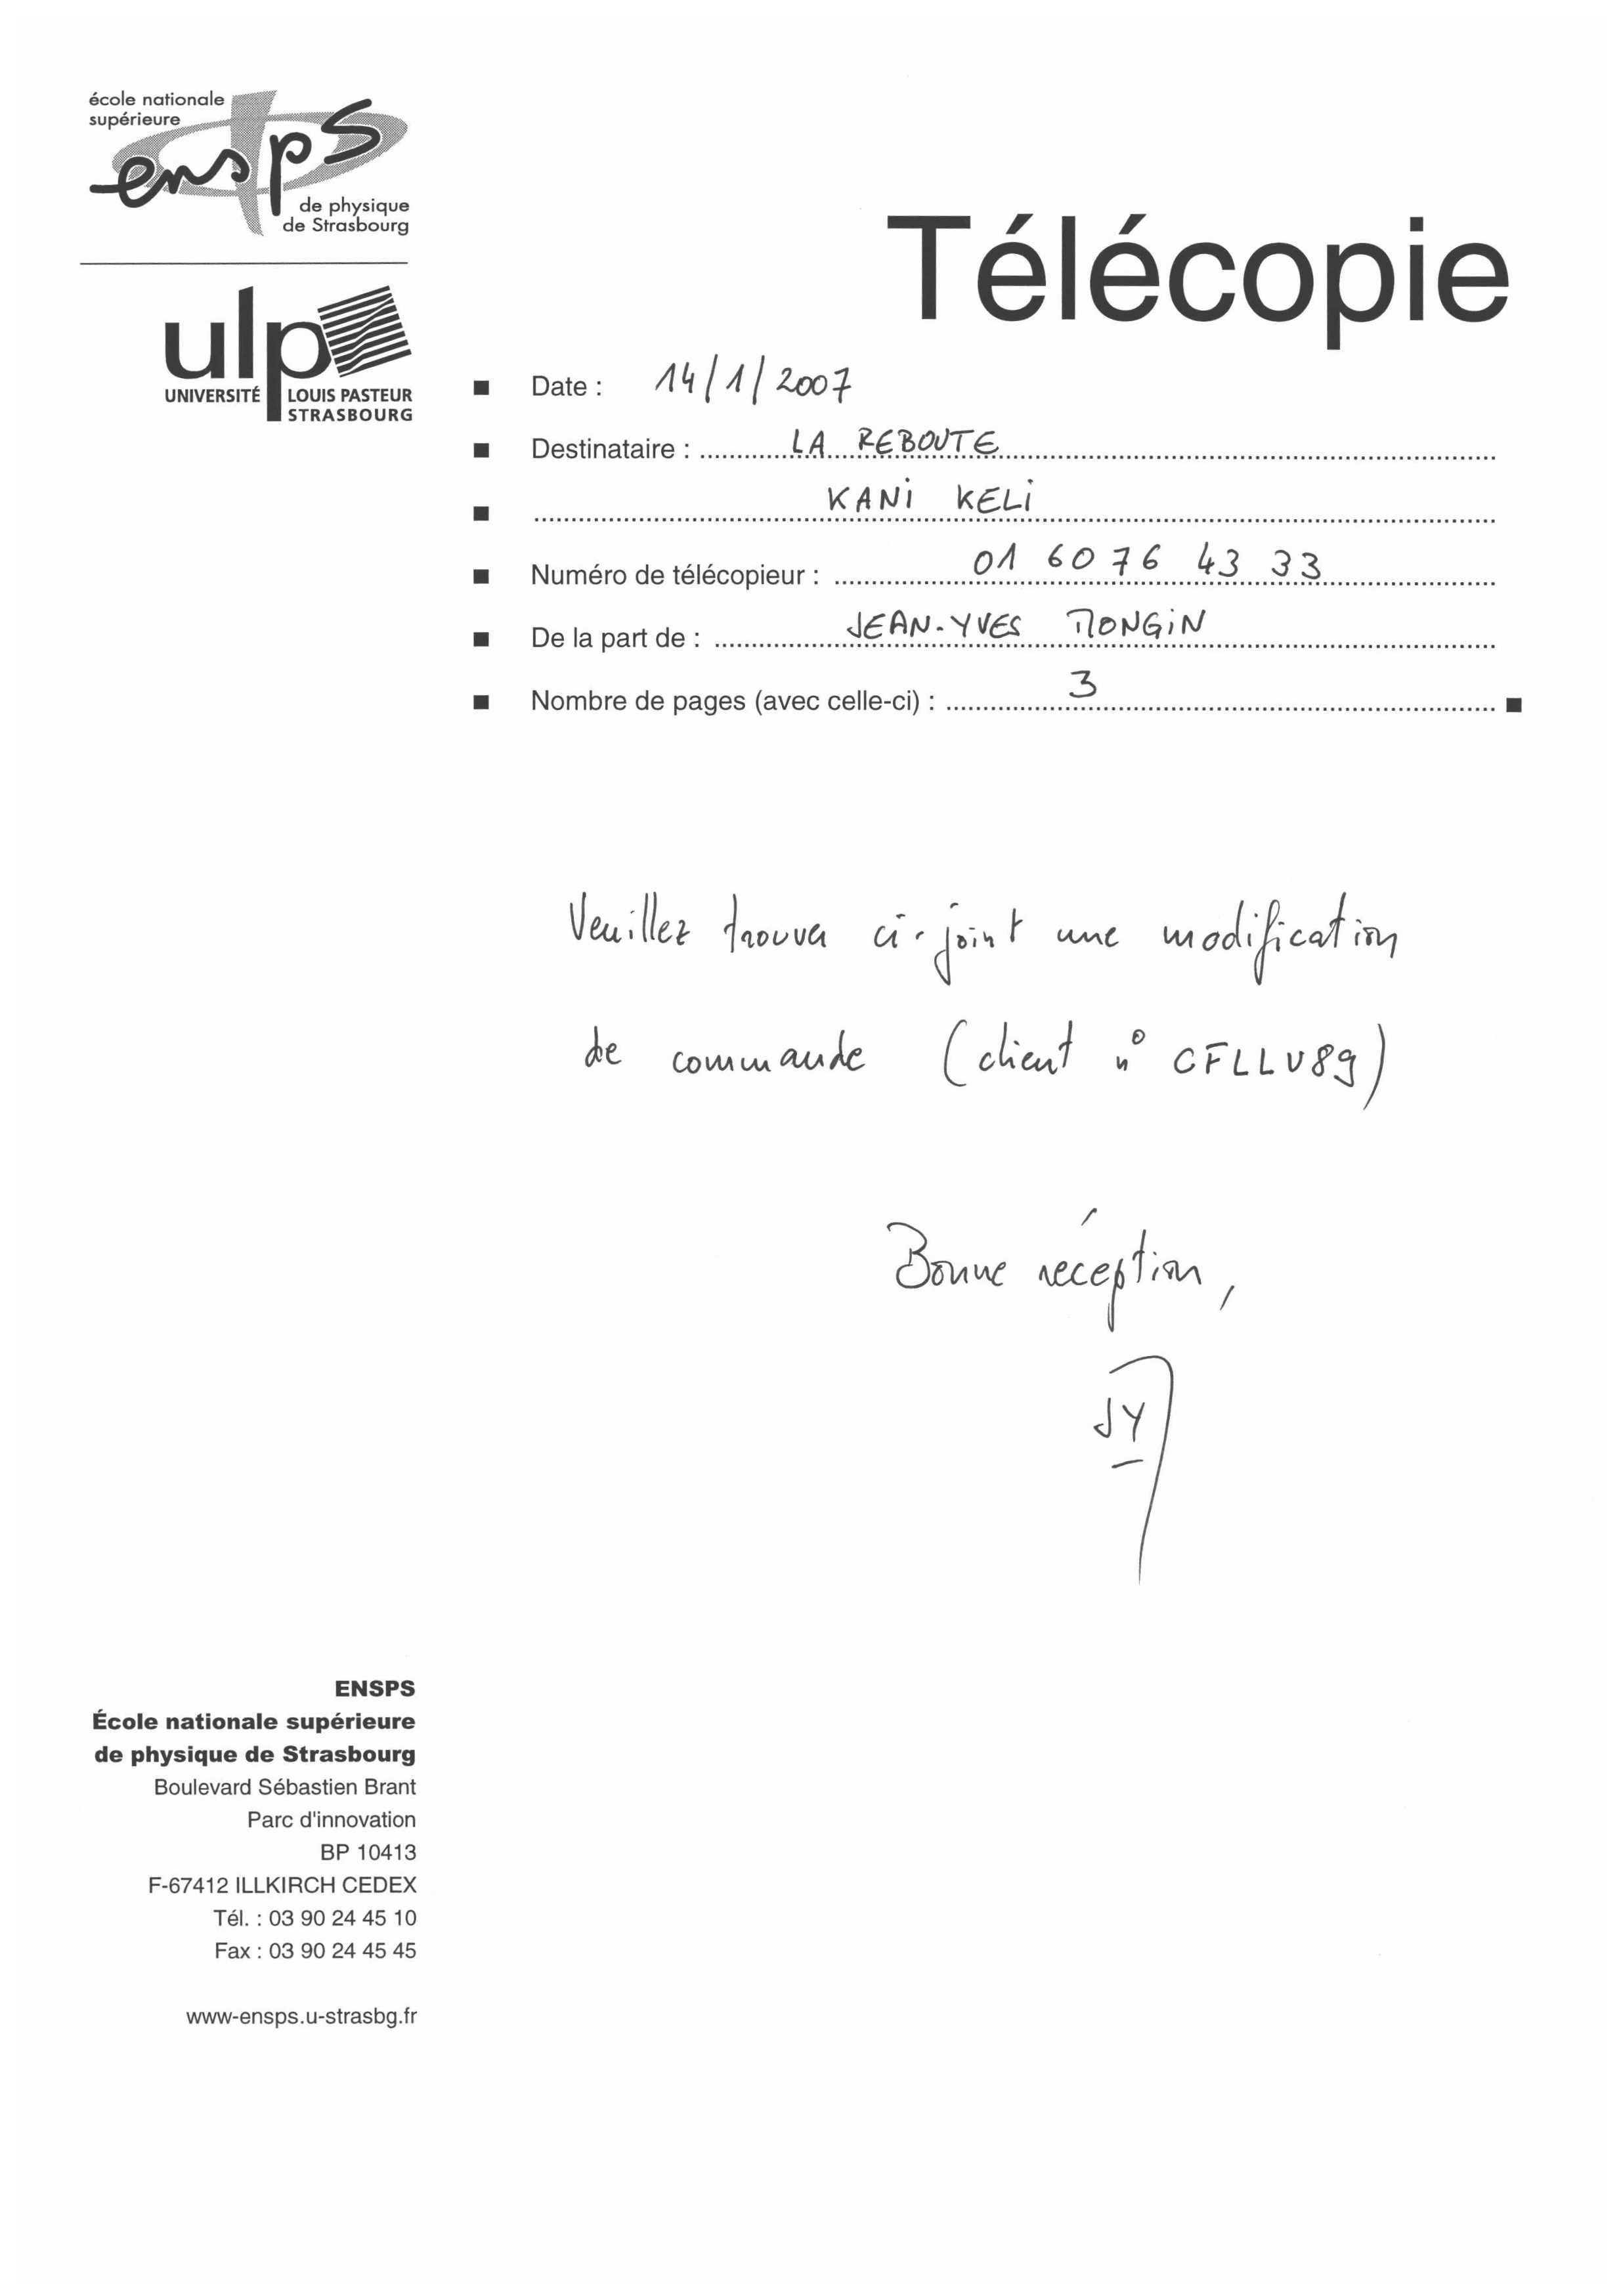 école nationale
supérieure
ensps
de physique
de Strasbourg
ulp
UNIVERSITÉ LOUIS PASTEUR
STRASBOURG
Télécopie
Date : 14/1/2007
Destinataire : LA REBOUTE
KANI KELI
Numéro de télécopieur : 01 60 76 43 33
De la part de : JEAN-YVES MONGIN
Nombre de pages (avec celle-ci) : 3
Veuillez trouver ci-joint une modification
de commande (client n° CFLLV89)
Bonne réception,
JY
ENSPS
École nationale supérieure
de physique de Strasbourg
Boulevard Sébastien Brant
Parc d'innovation
BP 10413
F-67412 ILLKIRCH CEDEX
Tél. : 03 90 24 45 10
Fax : 03 90 24 45 45
www-ensps.u-strasbg.fr